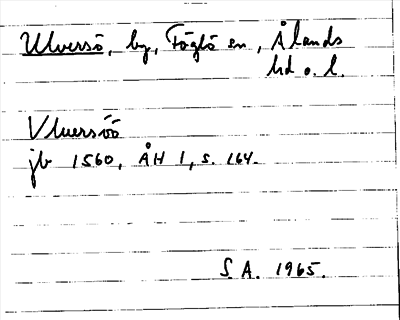 Ulversö, by, Föglö sn, Ålands
hd o. l.
Vluersöö
jb 1560, ÅH 1, s. 164.
S. A. 1965.